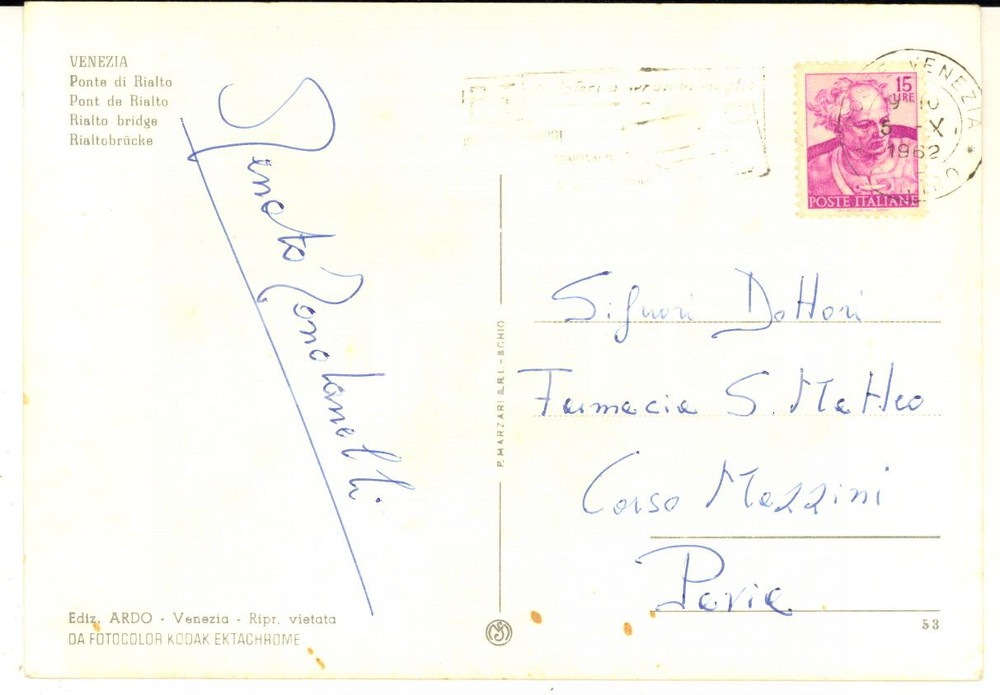 VENEZIA
Ponte di Rialto
Pont de Rialto
Rialto bridge
Rialtobrücke
15
LIRE
POSTE ITALIANE
VENEZIA
5 - X -
1962
Renato
Signori Dottori
Farmacia S. Matteo
Corso Mazzini
Pavia
P. MARZARI S.R.L. - SCHIO
Ediz. ARDO - Venezia - Ripr. vietata
DA FOTOCOLOR KODAK EKTACHROME
53